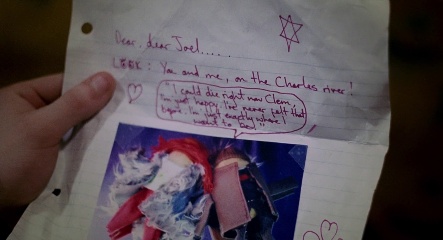 Dear, dear Joel......
LOOK: You and me, on the Charles river!
"I could die right now Clem,
I'm just happy. I've never felt that
before. I'm just exactly where
I want to be."